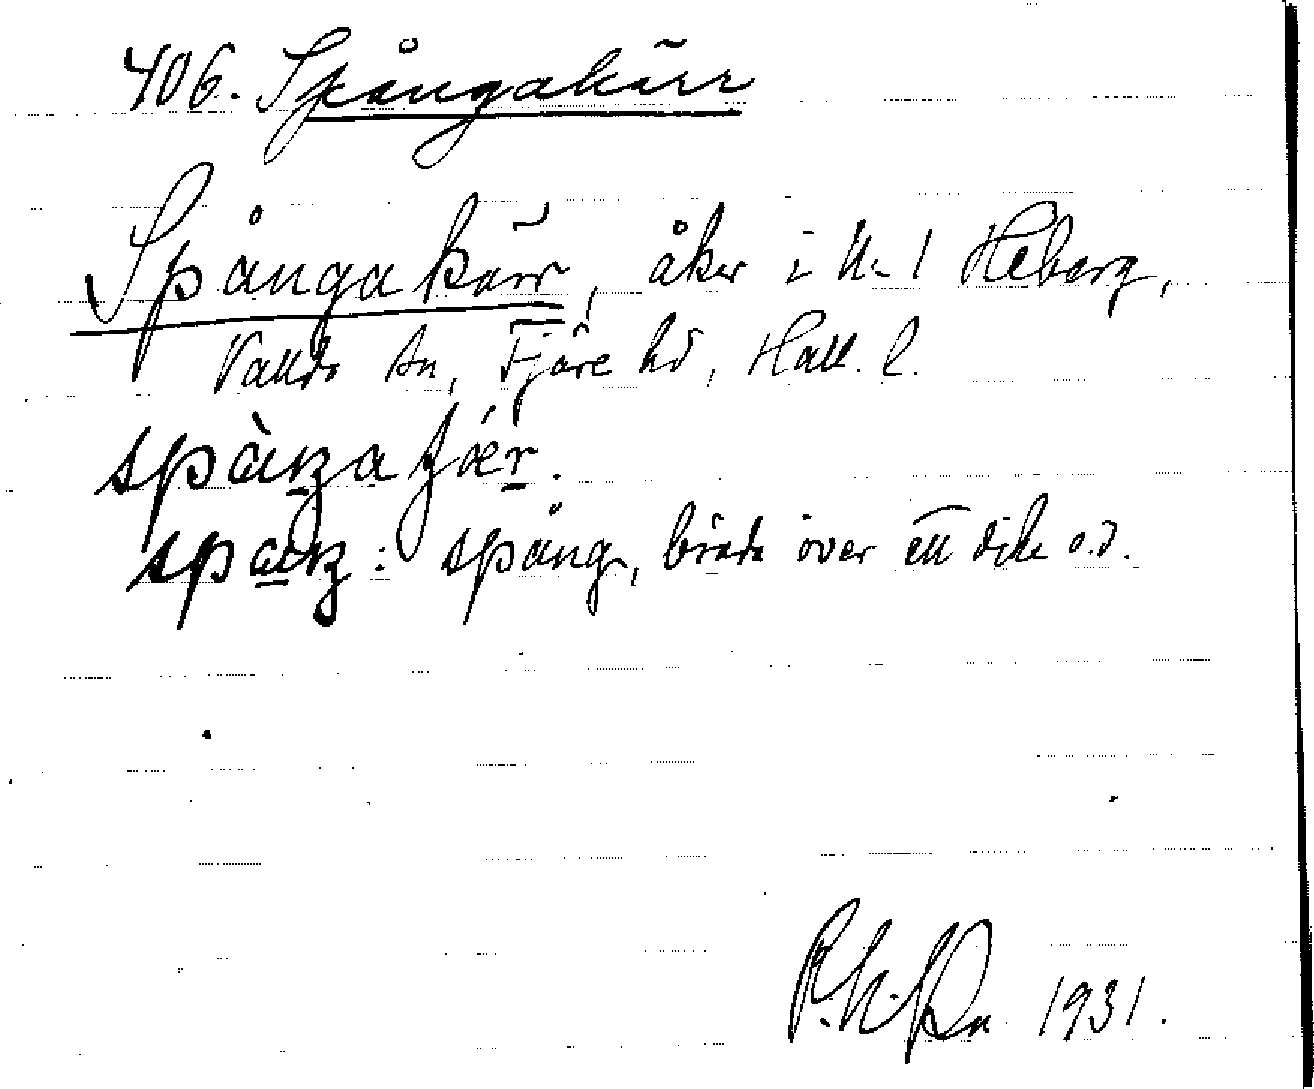 406. Spångakärr
Spångakärr, åker i N. 1 Heberg,
Vallda sn, Fjäre hd, Hall. l.
spàŋa
spaŋ: spång, bräda över ett dike o.d.
1931.